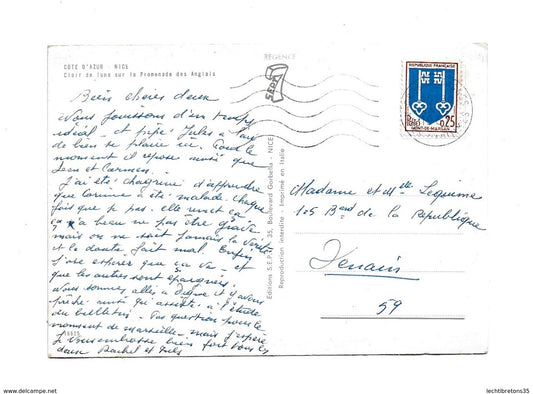 COTE D'AZUR - NICE
Clair de lune sur la Promenade des Anglais
Bien chères deux
Nous jouissons d'un temps
idéal - et pépé Jules a l'air
de bien se plaire ici. Pour le
moment il repose ainsi que
Jean et Carmen.
J'ai été chagriné d'apprendre
que Corinne a été malade. Chaque
fois que je pas. elle
ça a beau ne pas être grave
mais on ne sait jamais la vérité
et le doute fait mal. Enfin
j'ose espérer que ça va - et
que les autres sont épargnés.
Nous sommes allés à et j'avais
prêché ainsi qu'assisté à l'étude
du bulletin - Pas question pour le
moment de marseille - mais j'espère
Je vous embrasse bien fort tous les
deux Rachel et Jules
Editions S.E.P.T. 35, Boulevard Gorbella - NICE
Reproduction interdite - Imprimé en Italie
SEPT
REPUBLIQUE FRANÇAISE
Postes 0,25
MONT-DE-MARSAN
Madame et Mlle Leguime
105 Bard de la République
Denain
59
www.delcampe.net
lechtibretons35